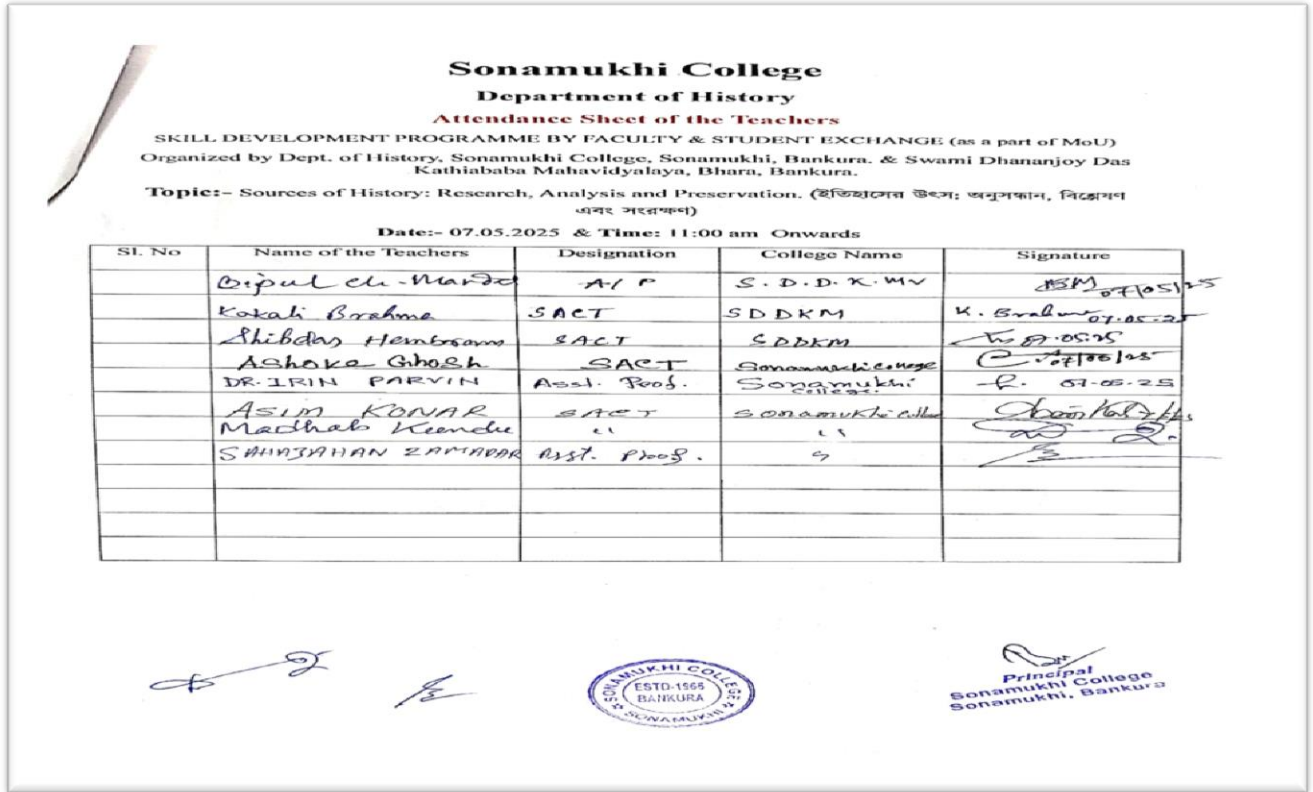 Sonamukhi College
Department of History
Attendance Sheet of the Teachers
SKILL DEVELOPMENT PROGRAMME BY FACULTY & STUDENT EXCHANGE (as a part of MoU)
Organized by Dept. of History, Sonamukhi College, Sonamukhi, Bankura. & Swami Dhananjoy Das
Kathiababa Mahavidyalaya, Bhara, Bankura.
Topic:- Sources of History: Research, Analysis and Preservation. (ইতিহাসের উৎস; অনুসন্ধান, বিশ্লেষণ
এবং সংরক্ষণ)
Date:- 07.05.2025 & Time: 11:00 am Onwards
Sl. No Name of the Teachers Designation College Name Signature
Bipul Ch. Mandal A/P S.D.D.K.MV BM 07/05/25
Kakali Brahma SACT SDDKM K. Brahma 07.05.25
Shibdas Hembram SACT SDDKM 07.05.25
Ashoke Ghosh SACT Sonamukhi College 07/05/25
DR. IRIN PARVIN Asst. Prof. Sonamukhi College. 07-05-25
ASIM KONAR SACT Sonamukhi College
Madhab Kundu " "
SAHAJAHAN ZAMADAR Asst. Prof. "
SONAMUKHI COLLEGE
ESTD-1966
BANKURA
SONAMUKHI
Principal
Sonamukhi College
Sonamukhi, Bankura